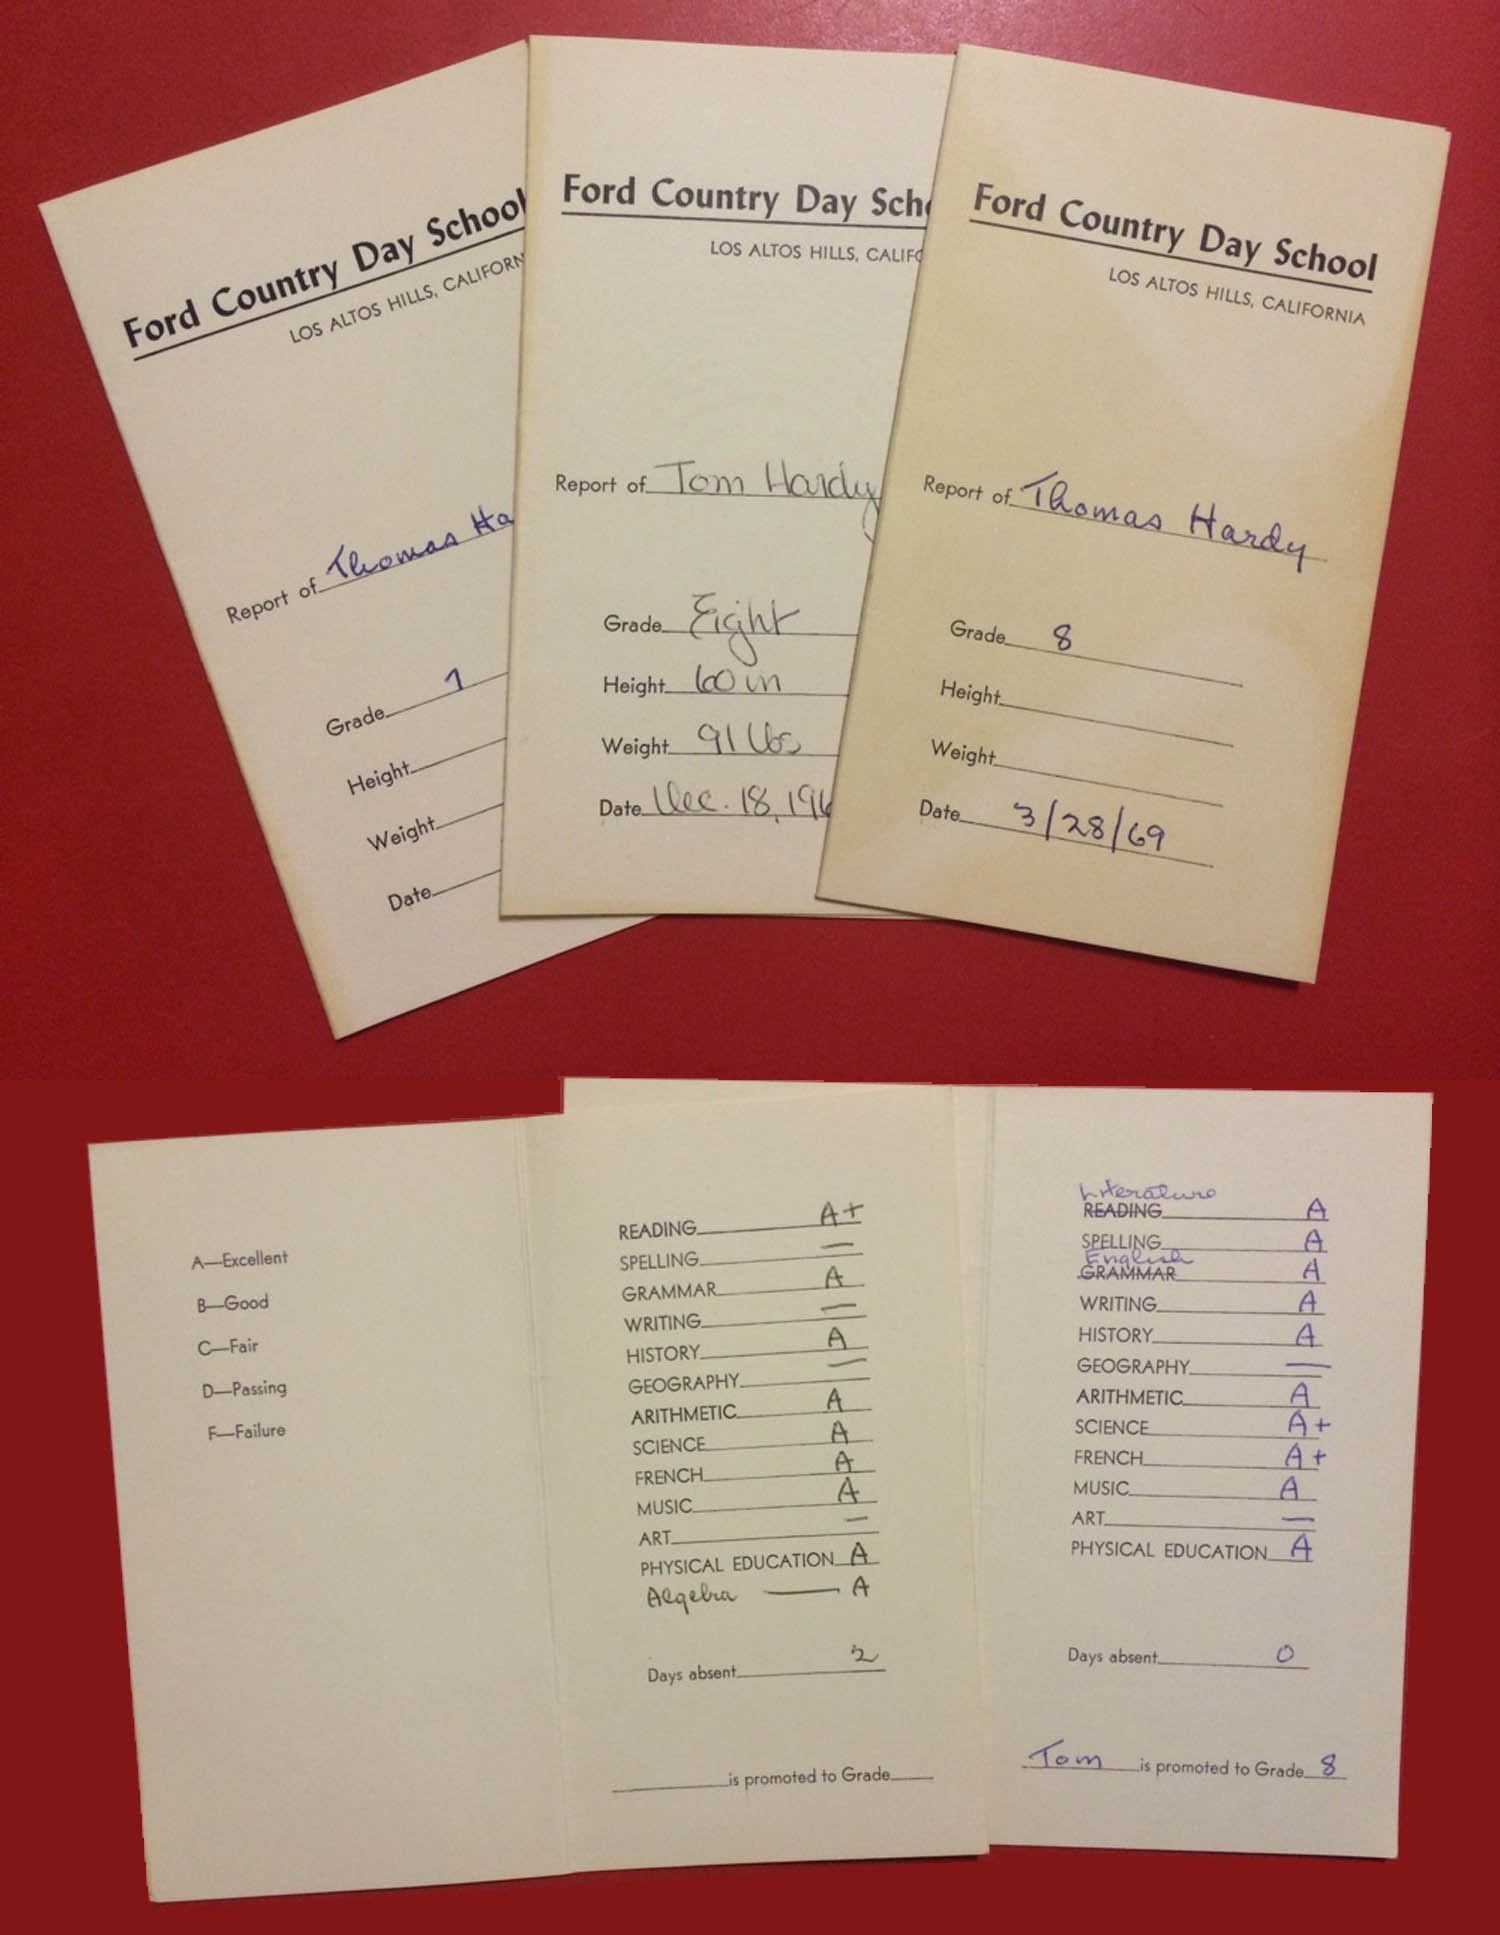 Ford Country Day School
LOS ALTOS HILLS, CALIFORN
Report of Thomas Ha
Grade 7
Height
Weight
Date
Ford Country Day Scho
LOS ALTOS HILLS, CALIFO
Report of Tom Hardy
Grade Eight
Height 60 in
Weight 91 lbs
Date Dec. 18, 196
Ford Country Day School
LOS ALTOS HILLS, CALIFORNIA
Report of Thomas Hardy
Grade 8
Height
Weight
Date 3/28/69
A—Excellent
B—Good
C—Fair
D—Passing
F—Failure
READING A+
SPELLING —
GRAMMAR A
WRITING —
HISTORY A
GEOGRAPHY —
ARITHMETIC A
SCIENCE A
FRENCH A
MUSIC A
ART —
PHYSICAL EDUCATION A
Algebra — A
Days absent 2
is promoted to Grade
Literature
READING A
SPELLING A
English
GRAMMAR A
WRITING A
HISTORY A
GEOGRAPHY —
ARITHMETIC A
SCIENCE A+
FRENCH A+
MUSIC A
ART —
PHYSICAL EDUCATION A
Days absent 0
Tom is promoted to Grade 8